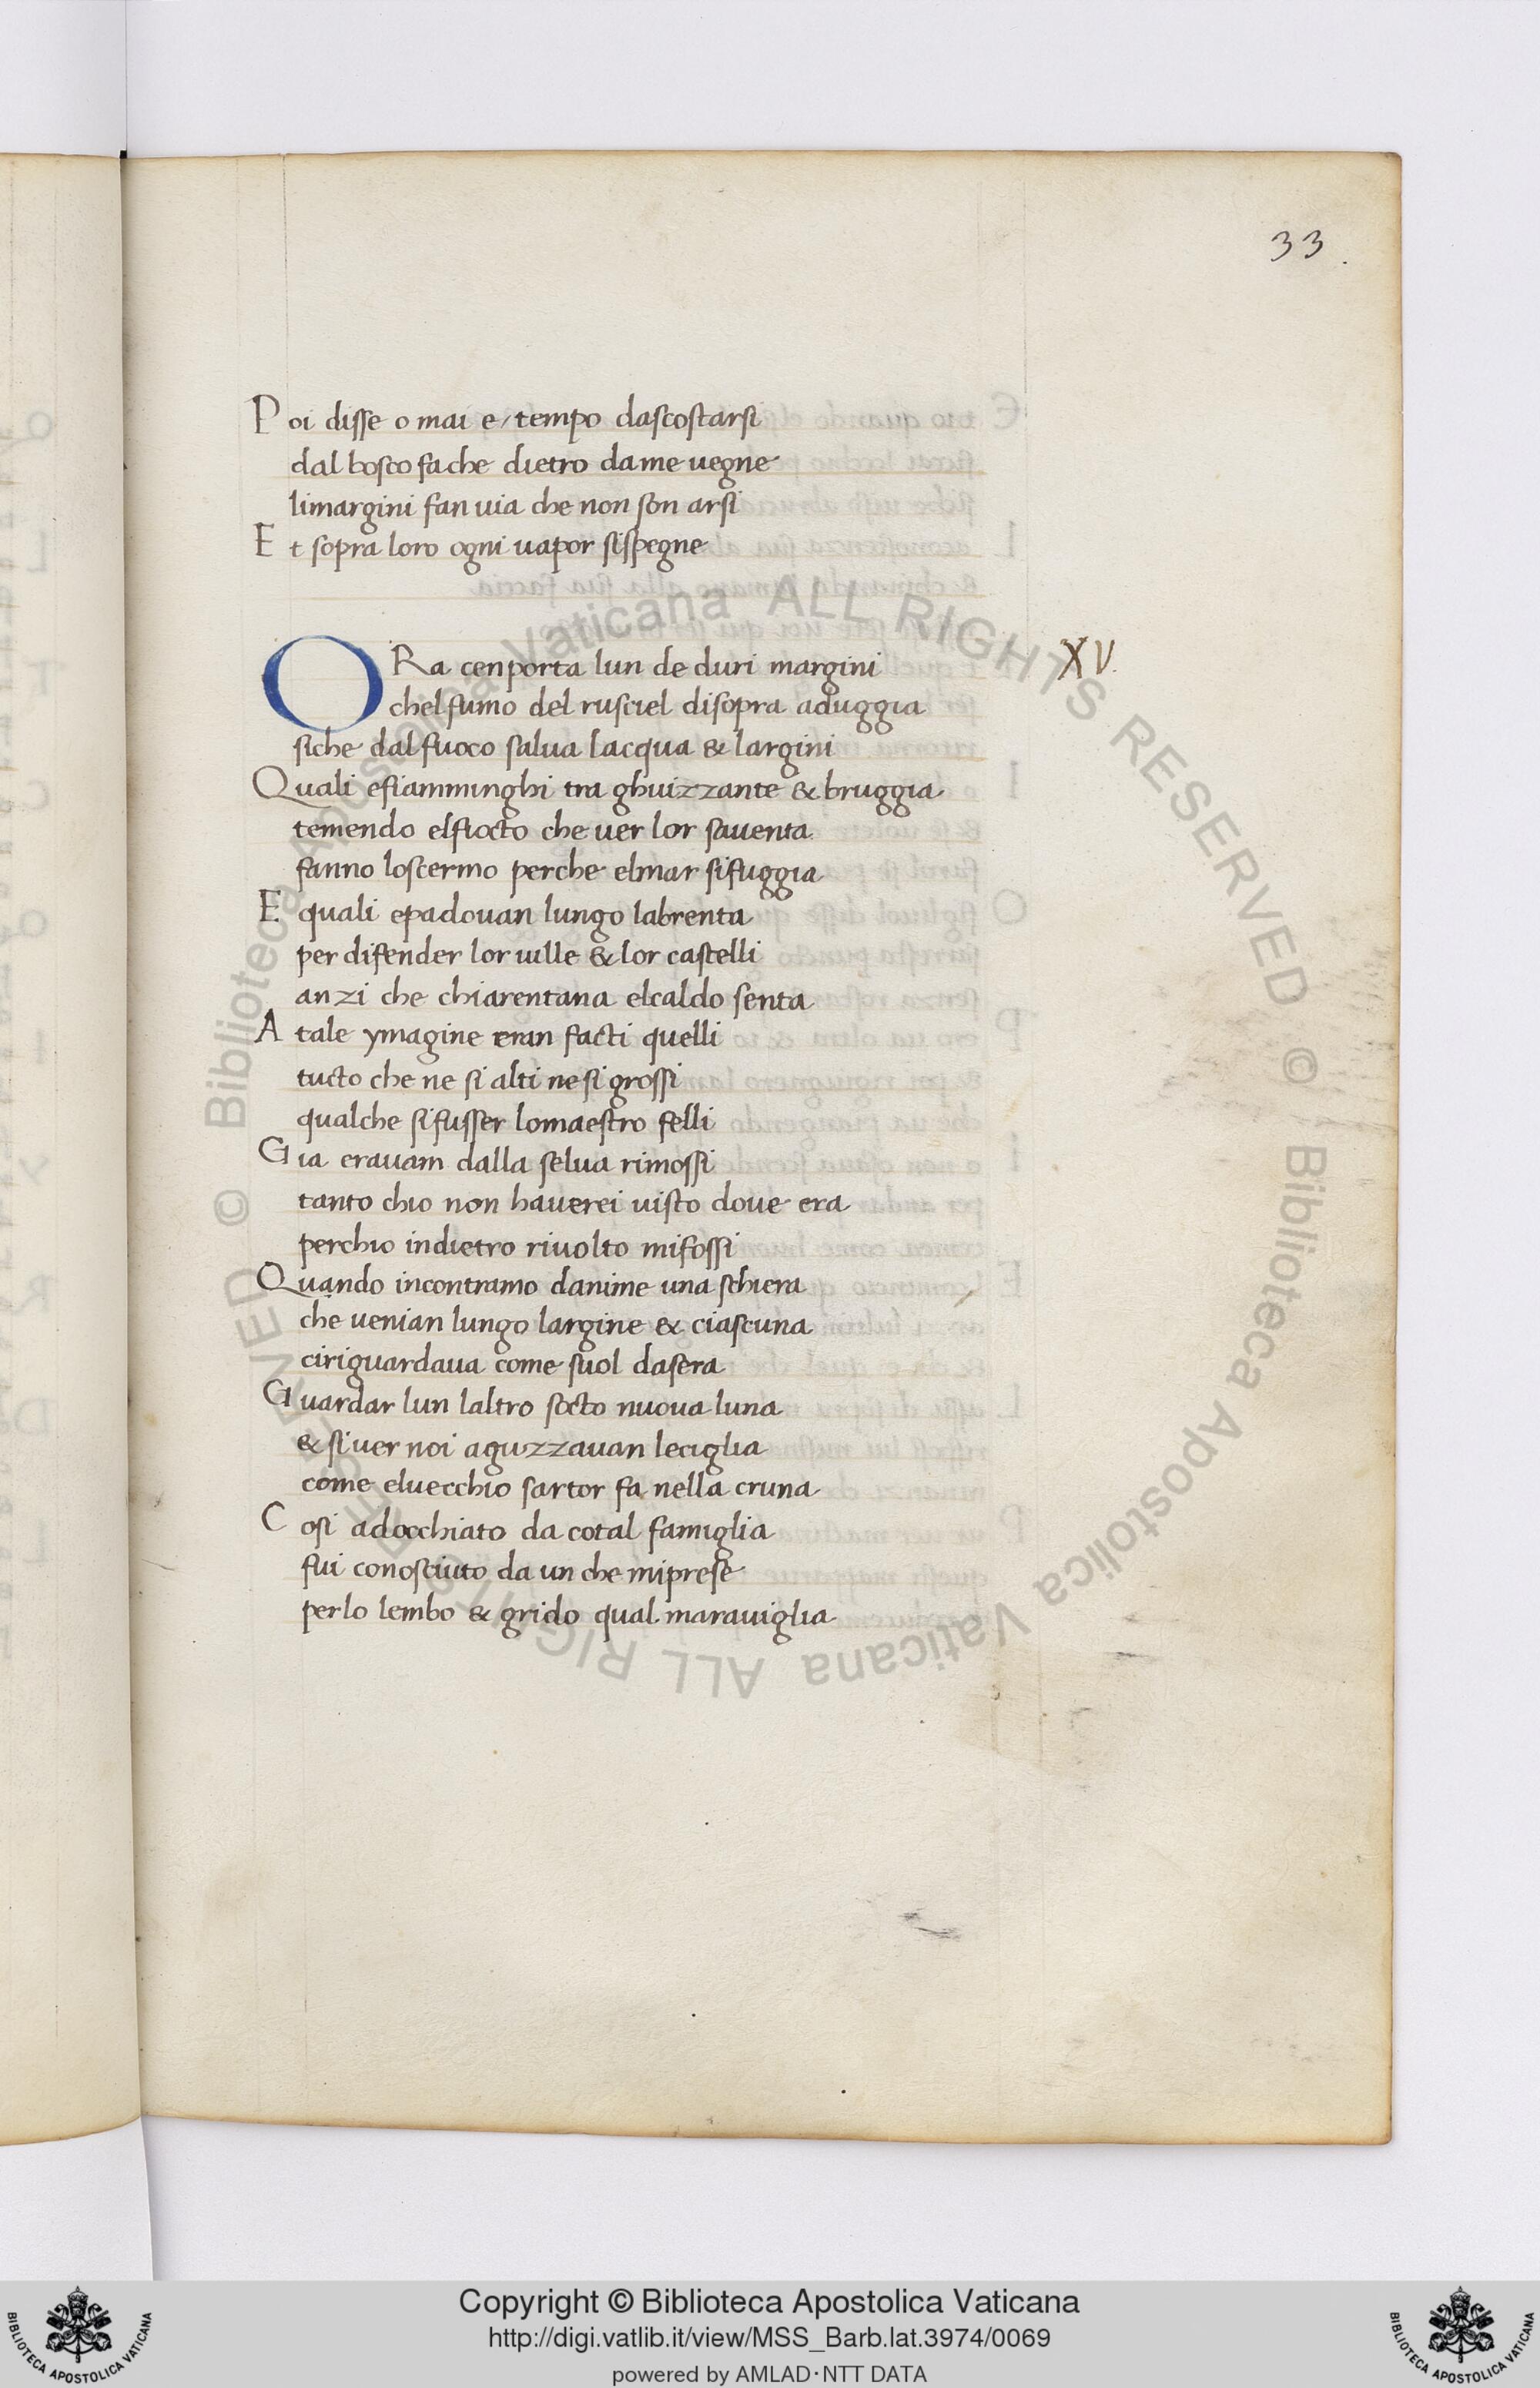 33.
Poi disse o mai e/ tempo dascostarsi
dal bosco fa che dietro da me uegne
limargini fan uia che non son arsi
Et sopra loro ogni uapor sispegne
ORa cenporta lun de duri margini
XV.
chel fumo del rusciel disopra aduggia
siche dal fuoco salua lacqua & largini
Quali efiamminghi tra ghuizzante & bruggia
temendo elfiocto che uer lor sauenta
fanno loscermo perche elmar sifuggia
E quali epadouan lungo labrenta
per difender lor uille & lor castelli
anzi che chiarentana elcaldo senta
A tale ymagine eran facti quelli
tucto che ne si alti ne si grossi
qualche sifusser lomaestro felli
Gia erauam dalla selua rimossi
tanto chio non hauerei uisto doue era
perchio indietro riuolto mifossi
Quando incontramo danime una schiera
che uenian lungo largine & ciascuna
ciriguardaua come suol dasera
Guardar lun laltro socto nuoua luna
& si uer noi aguzzauan leciglia
come eluecchio sartor fa nella cruna
Cosi adocchiato da cotal famiglia
fui conosciuto da un che miprese
perlo lembo & grido qual marauiglia
© Biblioteca Apostolica Vaticana ALL RIGHTS RESERVED © Biblioteca Apostolica Vaticana ALL RIGHTS RESERVED
Copyright © Biblioteca Apostolica Vaticana
http://digi.vatlib.it/view/MSS_Barb.lat.3974/0069
powered by AMLAD·NTT DATA
BIBLIOTECA APOSTOLICA VATICANA
BIBLIOTECA APOSTOLICA VATICANA